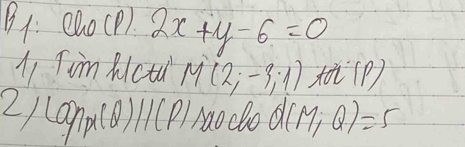 B1: Cho (P). 2x + y - 6 = 0
1, Tìm k/c từ M (2; -3; 1) tới (P)
2) Lập pt (Q) // (P) sao cho d(M; Q) = 5